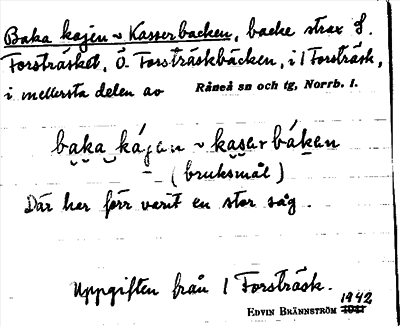 Baka kajen ~ Kasserbacken, backe strax S.
Forsträsket, Ö. Forsträskbäcken, i 1 Forsträsk,
i mellersta delen av Råneå sn och tg, Norrb. l.
baka kájen ~ kasarbákan
(bruksmål)
Där har förr varit en stor såg.
Uppgiften från 1 Forsträsk.
1942
EDVIN BRÄNNSTRÖM 1941